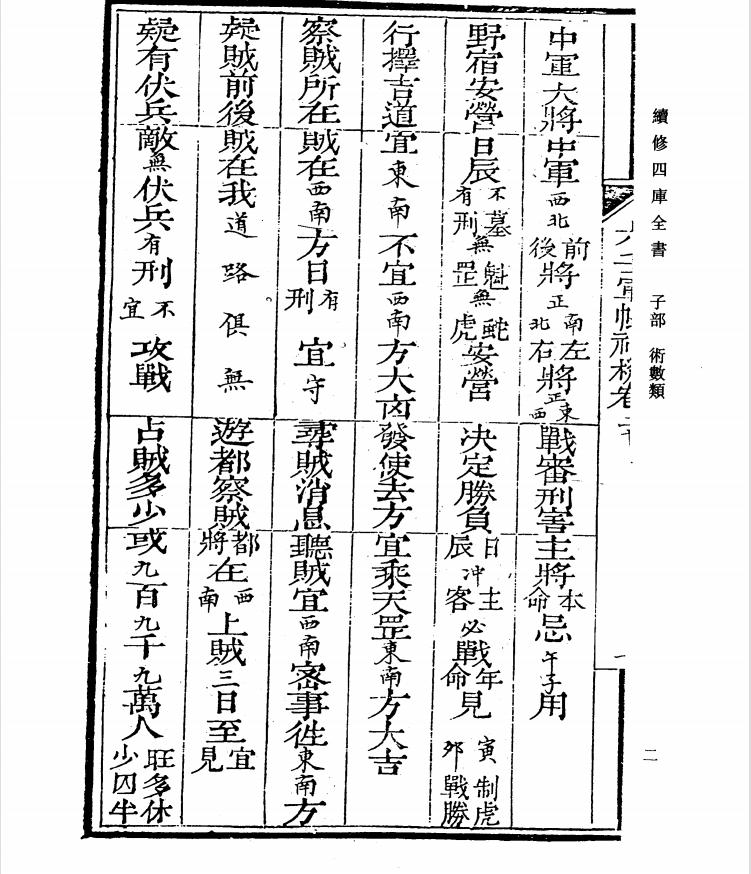 續修四庫全書 子部 術數類
二
六壬軍帳神機卷
一
中軍大將中軍西北前後將正南北左右將正東西戰審刑害主將本命忌午子用
野宿安營日辰不墓有刑無魁罡無蛇虎安營決定勝負日辰冲主客必戰年命見寅夘制虎戰勝
行擇吉道宜東南不宜西南方大凶發使去方宜乘天罡東南方大吉
察賊所在賊在西南方日有刑宜守尋賊消息聽賊宜西南密事徃東南方
疑賊前後賊在我道路俱無遊都察賊都將在西南上賊三日至宜見
疑有伏兵敵無伏兵有刑不宜攻戰占賊多少或九百九千九萬人旺多休少囚半